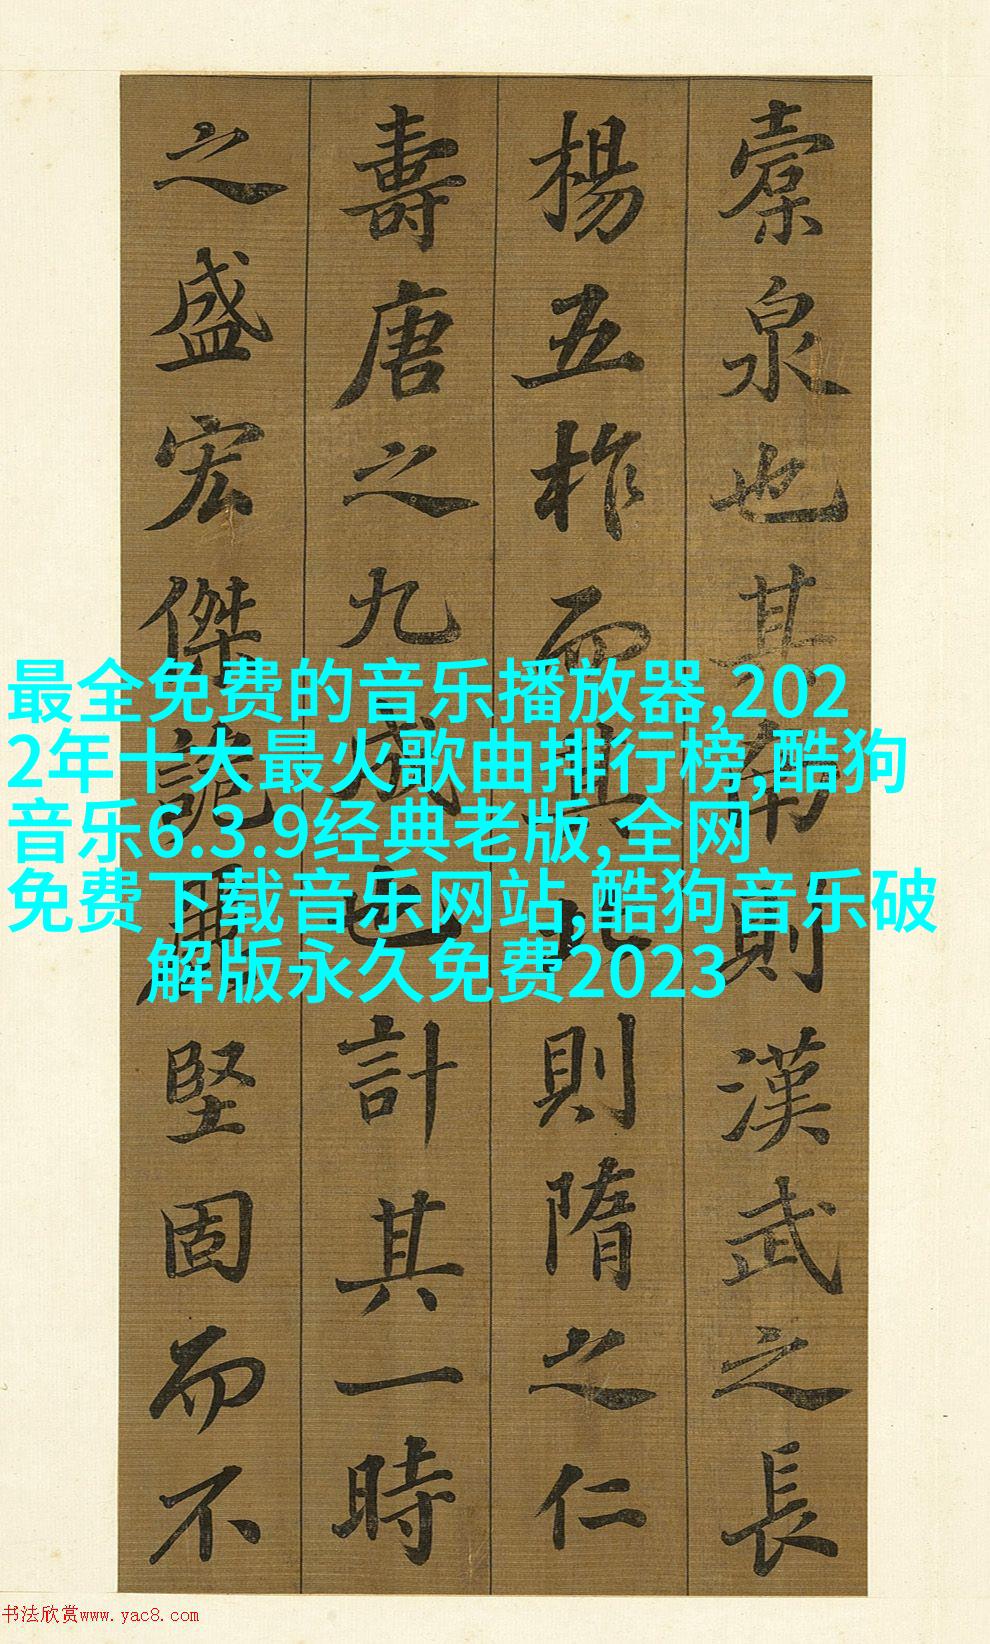 橐泉也其南則漢武之長
楊五柞而其北則隋之仁
壽唐之九成也計其一時
之盛宏傑詭麗堅固而不
最全免费的音乐播放器,202
2年十大最火歌曲排行榜,酷狗
音乐6.3.9经典老版,全网
免费下载音乐网站,酷狗音乐破
解版永久免费2023
书法欣赏www.yac8.com